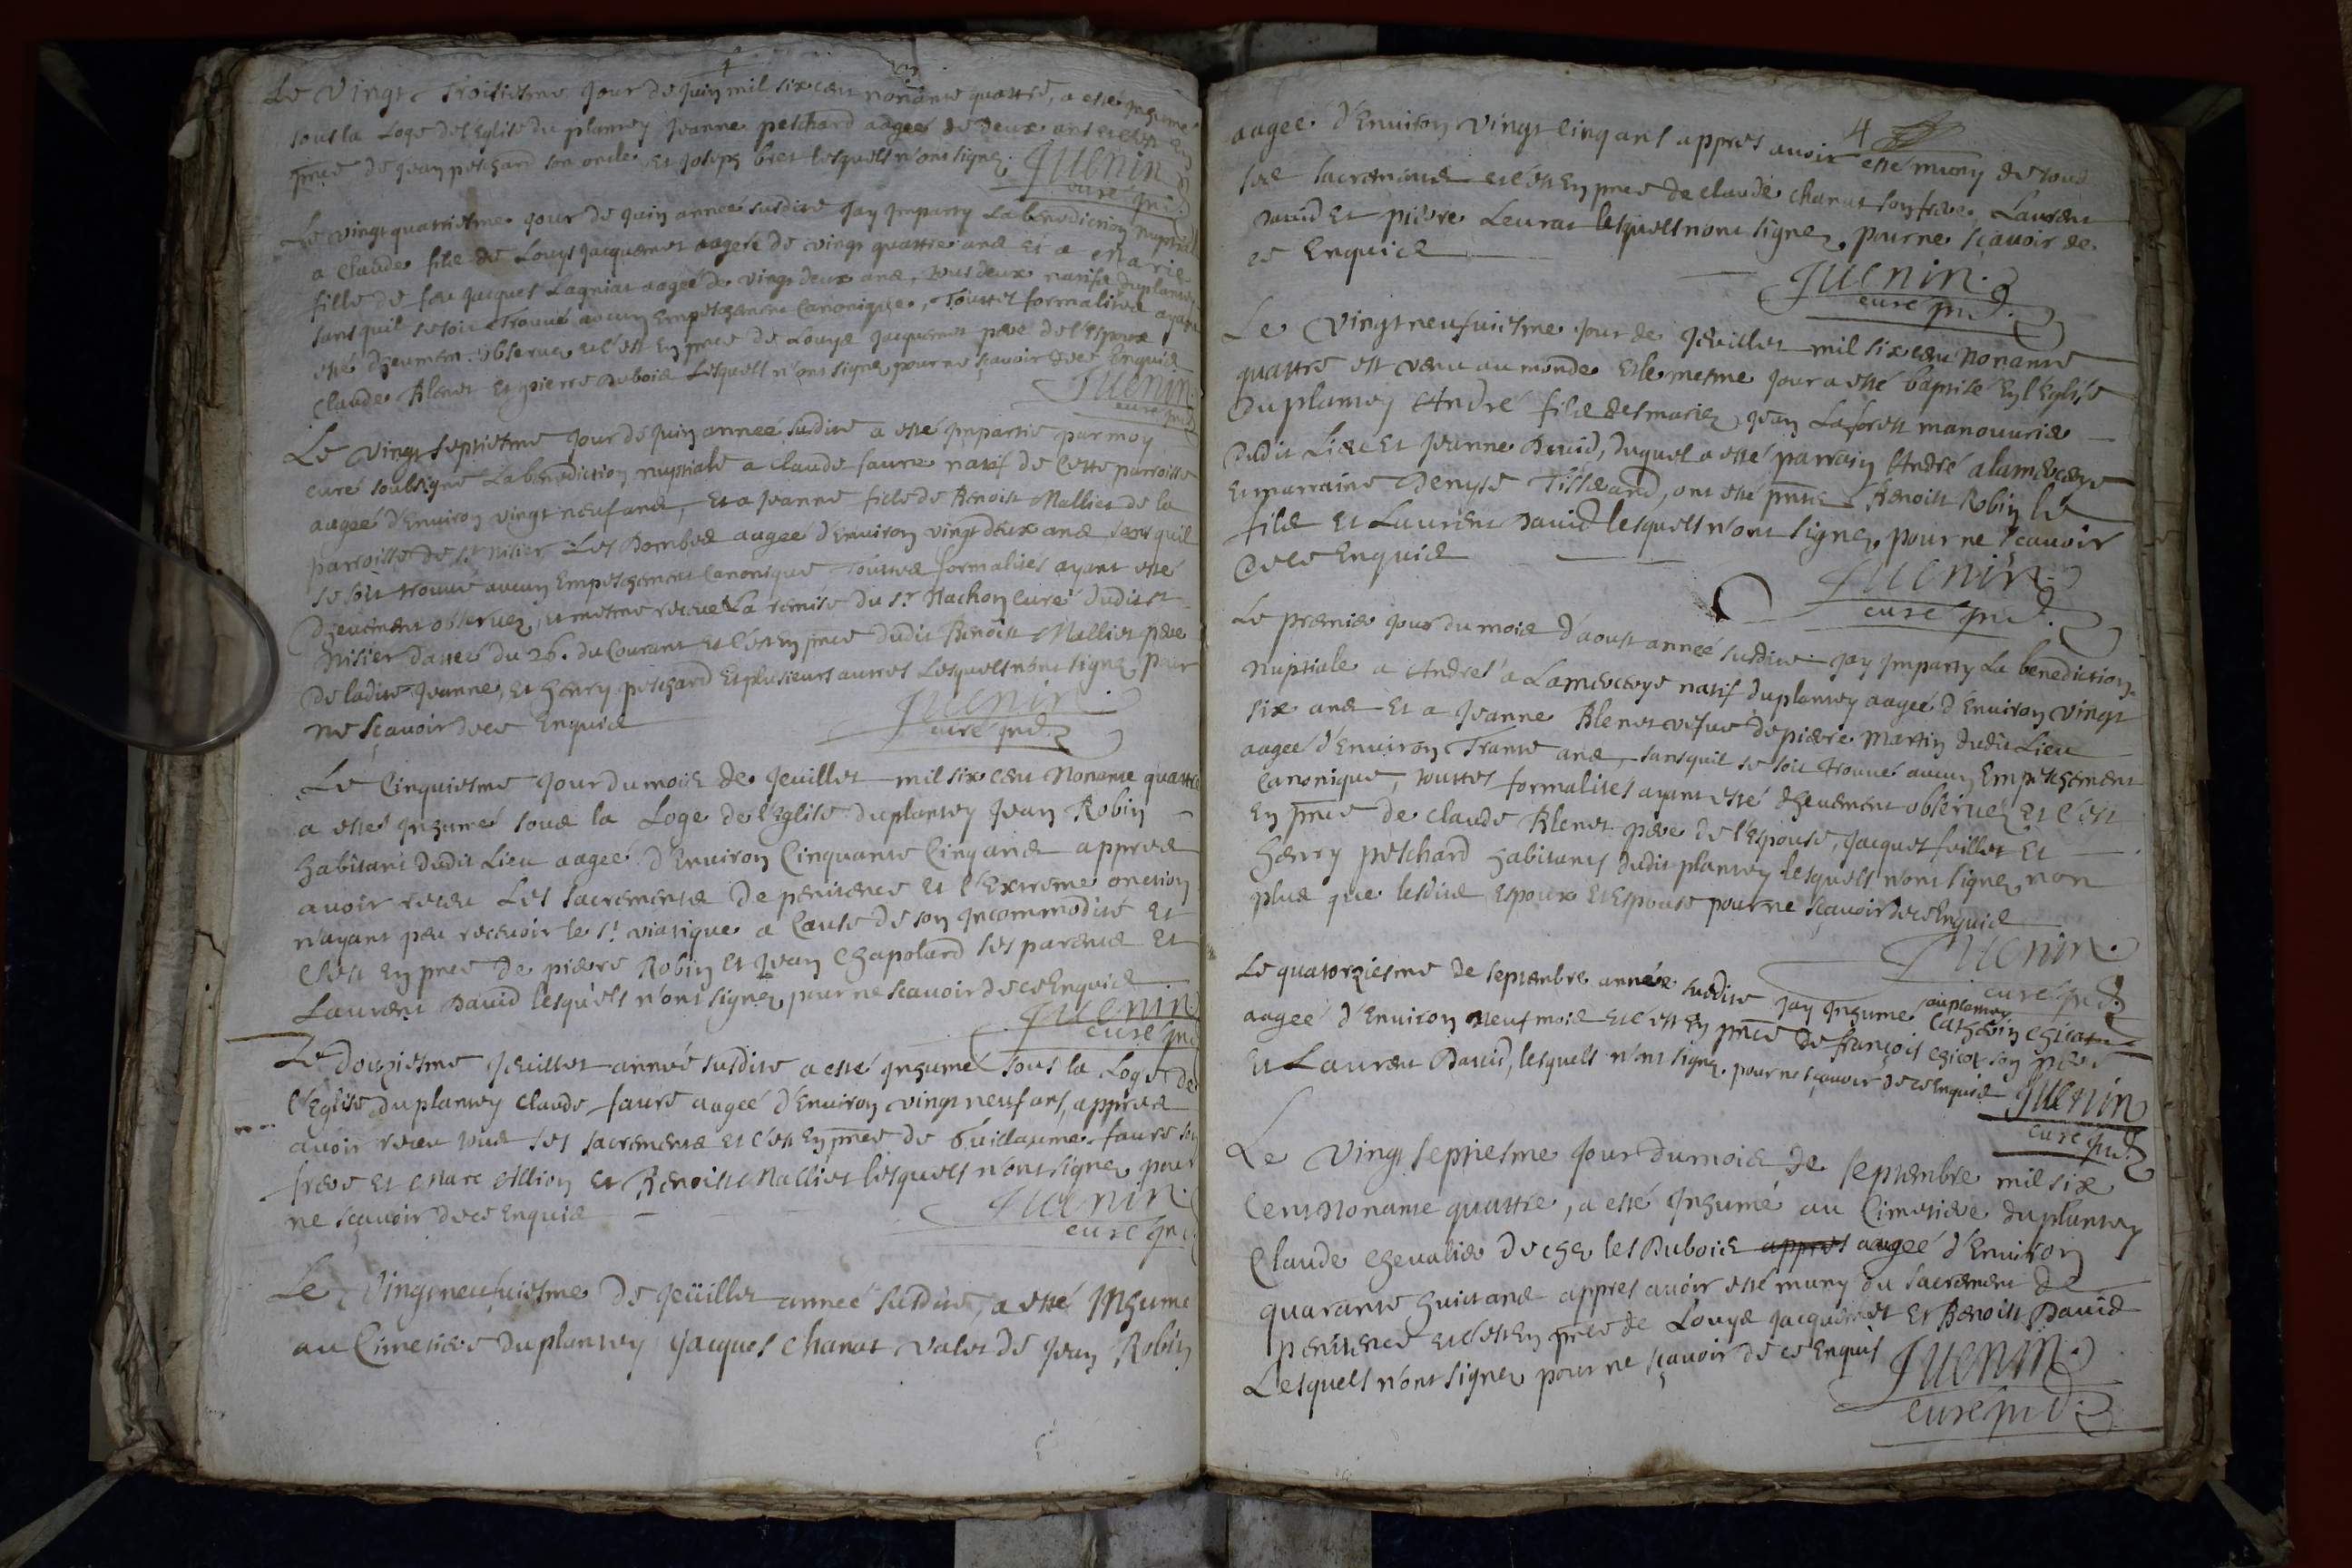 Le vingt troisiesme jour de juin mil six cent nonante quattre, a esté inhumé
sous la Loge de l'Eglise du plantey jeanne peschard aagée de deux ans et c'est en
pnce de jean peschard son oncle, et joseph bret lesquels n'ont signez.
Juenin
curé
Le vingt quatriesme jour de juin année susdite jay imparty La benediction nuptiale
a Claude fils de Louys jacquemet aageé de vingt quattre ans et a Marie
fille de feu jacques Lagniat aageé de vingt deux ans, tous deux natifs du plantey
sans quil se soit trouvé aucun Empeschement Canonique, Touttes formalites ayant
esté dheument observez et c'est En pnce de Louys jacquemet pere de l'Espoux
Claude Blenet et pierre Dubois Lesquels n'ont signez pour ne scavoir de ce Enquis
Juenin
curé
Le vingt septiesme jour de juin année susdite a esté impartie par moy
curé soubsigné La benediction nuptiale a claude faure natif de Cette parroisse
aageé d'Environ vingt neuf ans, Et a jeanne fille de Benoist Malliet de la
parroisse de st Nisier Les Dombes aageé d'Environ vingt deux ans sans quil
se soit trouvé aucun Empeschement Canonique Touttes formalités ayant esté
dheüement observez, et mesme receue La remise du Sr. Machon Curé dudit st
Nisier dattee du 26. du Courant et c'est En pnce dudit Benoist Malliet pere
De ladite jeanne, et henry peschard Et plusieurs autres Lesquels n'ont signez pour
ne sçavoir de ce Enquis
Juenin
curé pnd.
Le Cinquiesme jour du mois de jeuillet mil six cent Nonante quattre
a esté inhumé sous la Loge de l'Eglise du plantey jean Robin
habitant dudit Lieu aageé d'Environ Cinquante Cinq ans appres
avoir receu Les sacrements de penitence et l'Extreme onction
n'ayant peu recevoir le st. viatique a Cause de son incommodité et
C'est En pnce de pierre Robin et jean Chapolard ses parents et
Laurent David lesquels n'ont signez pour ne scavoir de ce Enquis
Juenin
curé
Le douziesme jeuillet année susdite a esté inhumé sous la Loge de
l'Eglise du plantey claude faure aageé d'Environ vingt neuf ans, appres
avoir receu tous ses sacrements et c'est En pnce de Guillaume faure son
frere et Marc Million et Benoist Malliet lesquels n'ont signez pour
ne sçavoir de ce Enquis
Juenin
curé
Le vingt neufuiesme de jeüillet année susdite, a esté inhumé
au Cimetiere du plantey jacques Chanat valet de jean Robin
4
aageé d'Environ vingt cinq ans appres avoir esté muny de tous
ses sacrements et c'est En pnce de claude chanat son frere, Laurent
David Et pierre Leurat lesquels n'ont signez, pour ne sçavoir de
ce Enquis
Juenin
curé pnd.
Le vingt neufuiesme jour de jeuillet mil six cent Nonante
quattre est venu au monde et le mesme jour a esté baptisé En l'Eglise
Du plantey André fils des mariez jean Laforest manouurier
Dudit Lieu Et jeanne David, duquel a esté parrain André alamercerye
Et marraine Denyse Tisserand, ont esté pnts Benoist Robin le
fils et Laurent David lesquels n'ont signez, pour ne sçavoir
De ce Enquis
Juenin
curé pnd.
Le premier jour du mois d'aoust année susdite jay imparty La benediction
nuptiale a André a Lamercerye natif du plantey aageé d'Environ vingt
six ans Et a jeanne Blenet vefve de pierre Martin dudit Lieu
aageé d'Environ Trante ans, sans quil se soit trouvé aucun Empeschement
Canonique, touttes formalites ayant esté dheuement observez et c'est
En pnce de claude Blenet pere de l'Espouse, jacques feillet et
henry peschard habitants dudit plantey lesquels n'ont signez, non
plus que lesdits Espoux et Espouse pour ne sçavoir de ce Enquis
Juenin
curé pnd.
Le quatorziesme de septembre année susdite jay inhumé au plantey Catherin chicat
aageé d'Environ neuf mois et c'est En pnce de françois chicot son pere
Et Laurent David, lesquels n'ont signez, pour ne sçavoir de ce Enquis
Juenin
curé pnd.
Le vingt septiesme jour du mois de septembre mil six
Cent Nonante quattre, a esté inhumé au Cimetiere du plantey
Claude chevalier de chez les Dubois appres aageé d'Environ
quarante huict ans appres avoir esté muny du sacrement de
penitence et c'est En pnce de Louys jacquemet et Benoist David
Lesquels n'ont signez pour ne sçavoir de ce Enquis
Juenin
curé pnd.